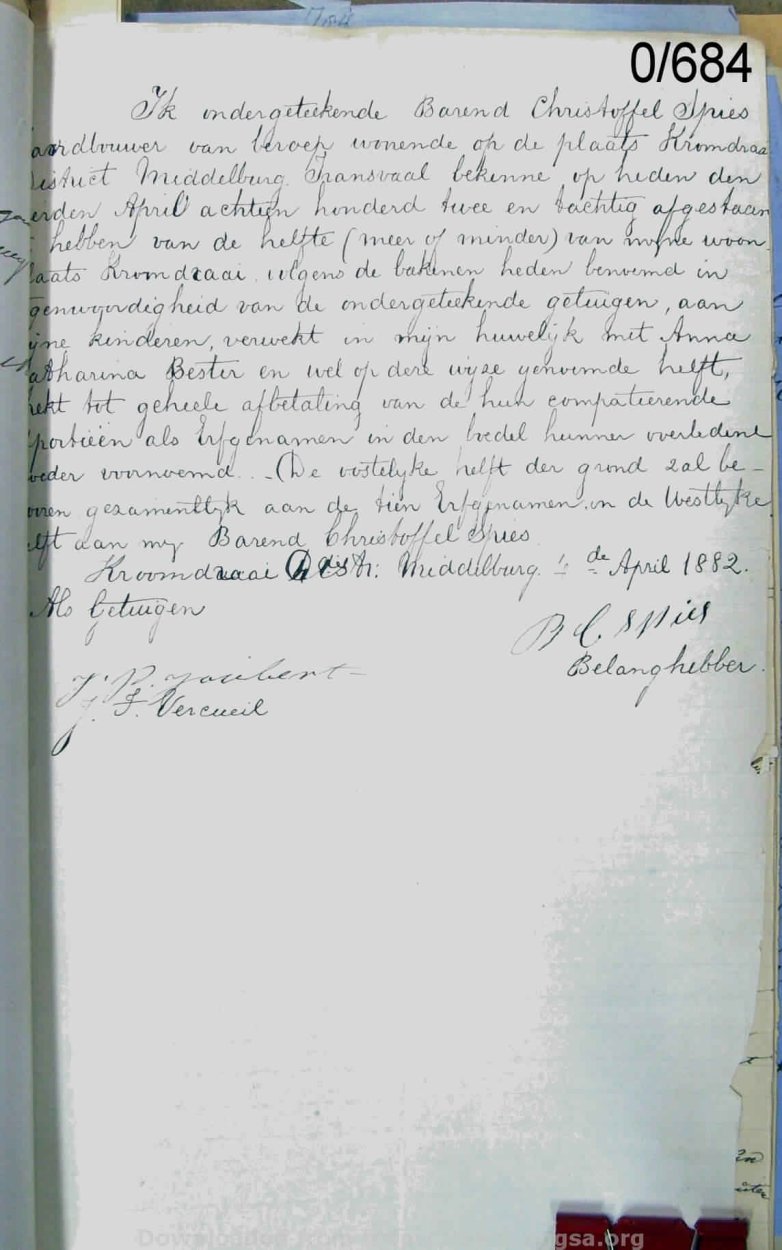 0/684
Ik ondergeteekende Barend Christoffel Spies
aardbouwer van beroep wonende op de plaats Kromdraa
district Middelburg Transvaal bekenne op heden den
erden April achtien honderd twee en tachtig afgestaan
hebben van de helfte (meer of minder) van myne woon
laats Kromdraai volgens de bakenen heden benoemd in
genwoordigheid van de ondergeteekende getuigen, aan
yne kinderen, verwekt in mijn huwelijk met Anna
atharina Bester en wel op dere wyze genoemde helft,
rekt tot geheele afbetaling van de hun compatieerende
portieën als Erfgenamen in den boedel hunner overledene
oeder voornoemd. - (De oostelyke helft der grond zal be-
oren gezamentlyk aan de tien Erfgenamen en de Westlyke
elft aan my Barend Christoffel Spies
Kroomdraai Distr: Middelburg. 4 de April 1882.
Als Getuigen
B C Spies
Belanghebber.
J. P. Joubert
J. F. Vercueil
gsa.org